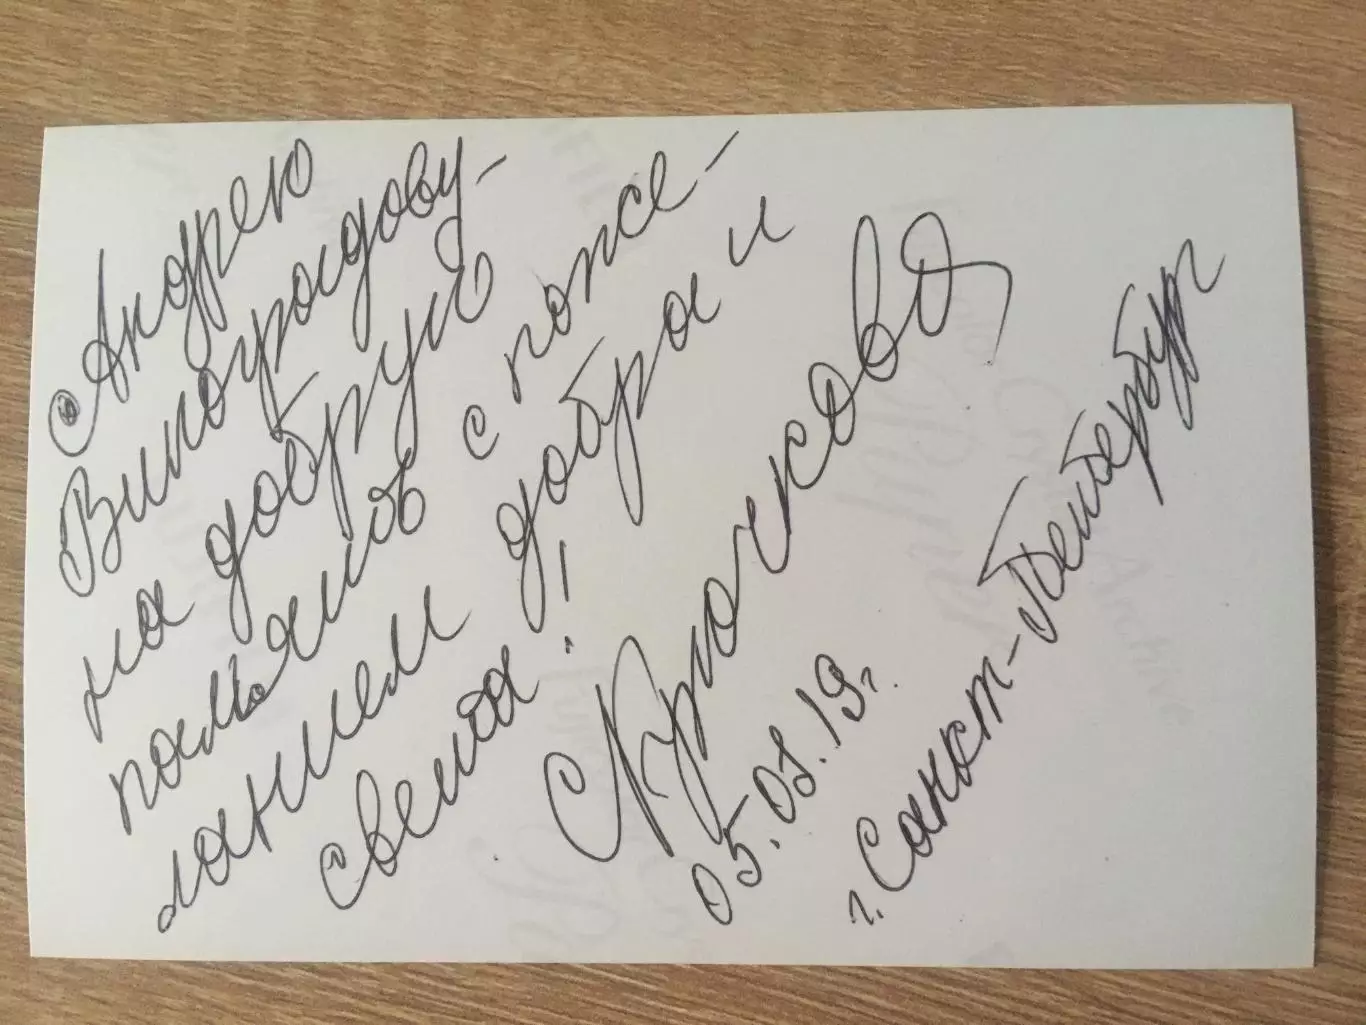 Андрею
Виноградову -
на добрую
память с поже-
ланием добра и
света!
05.08.19 г.
г. Санкт-Петербург